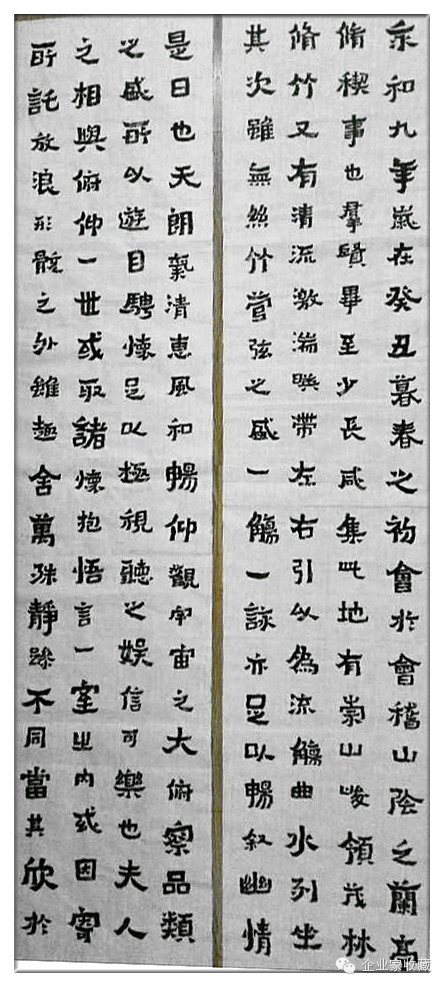 永和九年歲在癸丑暮春之初會於會稽山陰之蘭亭
脩稧事也羣賢畢至少長咸集此地有崇山峻領茂林
脩竹又有清流激湍暎帶左右引以為流觴曲水列坐
其次雖無絲竹管弦之盛一觴一詠亦足以暢叙幽情
是日也天朗氣清惠風和暢仰觀宇宙之大俯察品類
之盛所以遊目騁懷足以極視聽之娛信可樂也夫人
之相與俯仰一世或取諸懷抱悟言一室之內或因寄
所託放浪形骸之外雖趣舍萬殊靜躁不同當其欣於
企业家收藏